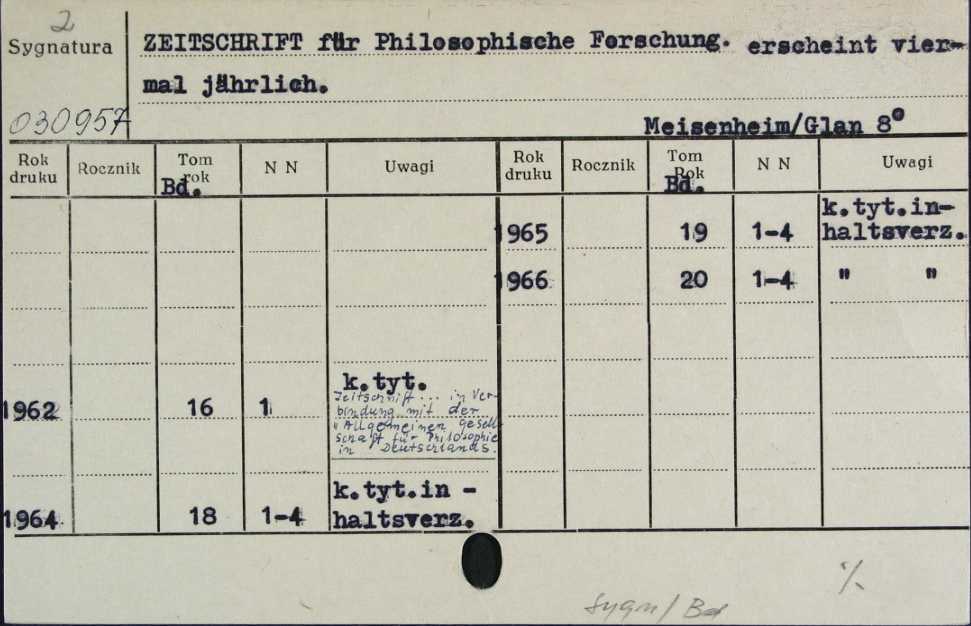 2
Sygnatura
ZEITSCHRIFT für Philosophische Forschung. erscheint vier-
mal jährlich.
030957
Meisenheim/Glan 8°
Rok druku Rocznik Tom rok Bd. N N Uwagi Rok druku Rocznik Tom Rok Bd. N N Uwagi
1965 19 1-4 k.tyt.in-
haltsverz.
1966 20 1-4 " "
1962 16 1 k.tyt.
Zeitschrift... in Ver-
bindung mit der
"Allgemeinen Gesell-
schaft für Philosophie
in Deutschlands.
1964 18 1-4 k.tyt.in -
haltsverz.
Sygn/Bd